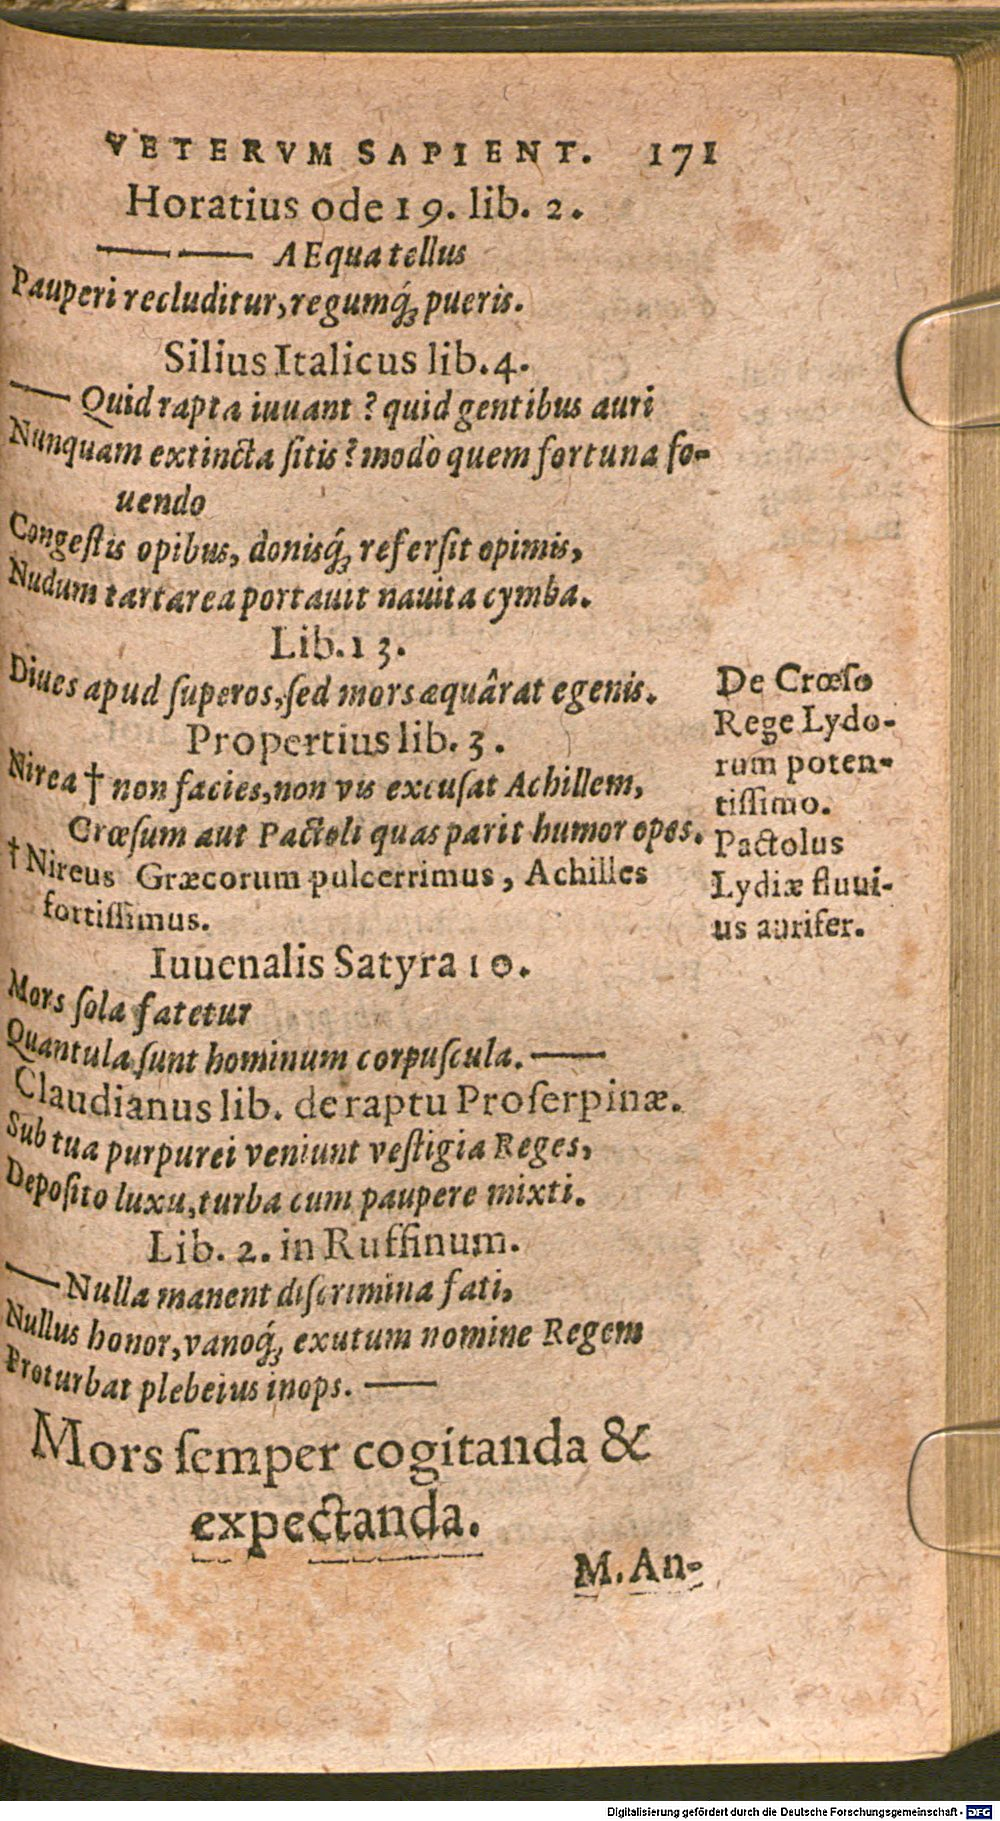 VETERVM SAPIENT. 171
Horatius ode 19. lib. 2.
—— —— AEqua tellus
Pauperi recluditur, regumq́; pueris.
Silius Italicus lib. 4.
—— Quid rapta iuuant? quid gentibus auri
Nunquam extincta ſitis? modò quem fortuna fo-
uendo
Congeſtis opibus, donisq́; referſit opimis,
Nudum tartarea portauit nauita cymba.
Lib. 13.
Diues apud ſuperos, ſed mors æquârat egenis.
Propertius lib. 3.
Nirea † non facies, non vis excuſat Achillem,
Crœſum aut Pactoli quas parit humor opes.
† Nireus Græcorum pulcerrimus, Achilles
fortiſſimus.
De Crœſo
Rege Lydo-
rum poten-
tiſſimo.
Pactolus
Lydiæ fluui-
us aurifer.
Iuuenalis Satyra 10.
Mors ſola fatetur
Quantula ſunt hominum corpuſcula. ——
Claudianus lib. de raptu Proſerpinæ.
Sub tua purpurei veniunt veſtigia Reges,
Depoſito luxu, turba cum paupere mixti.
Lib. 2. in Ruffinum.
—— Nulla manent diſcrimina fati,
Nullus honor, vanoq́; exutum nomine Regem
Proturbat plebeius inops. ——
Mors ſemper cogitanda &
expectanda.
M. An-
Digitalisierung gefördert durch die Deutsche Forschungsgemeinschaft - DFG